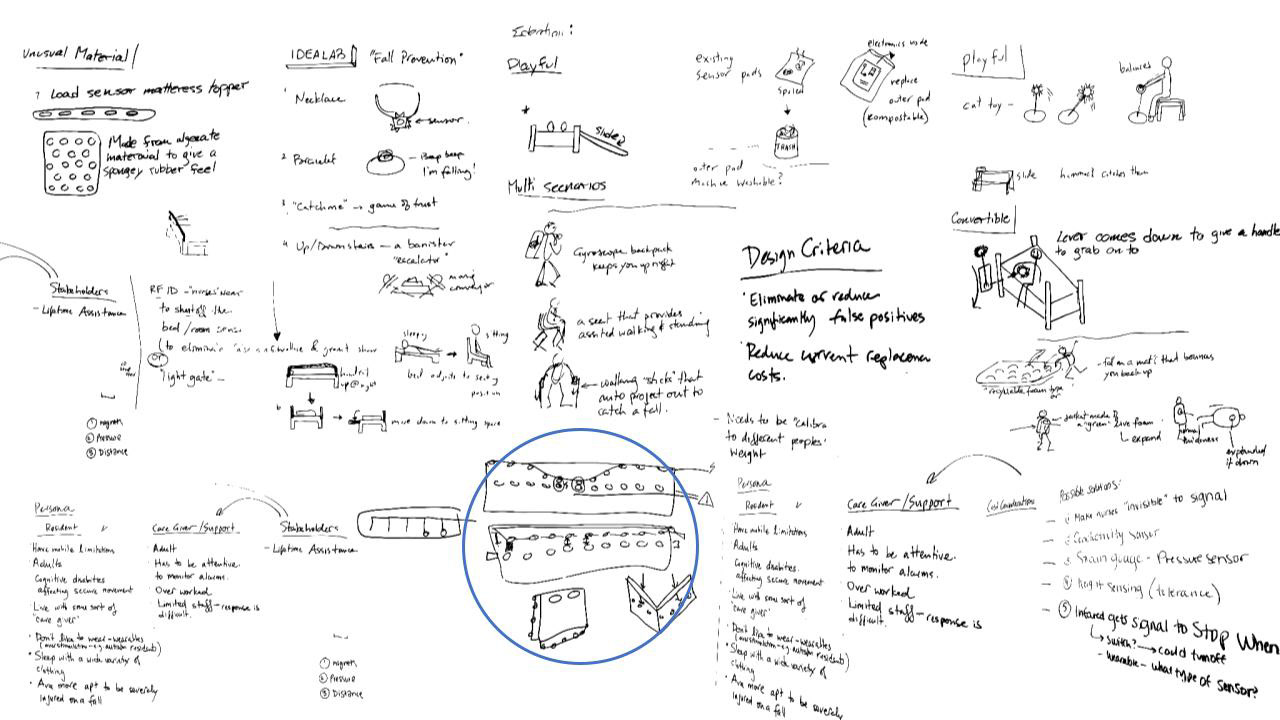 Unusual Material
Load sensor matteress topper
Made from algenate
materuial to give a
spongey rubber feel
Stakeholders
- Lifetime Assistance
RFID - "nurses" wear
to shutoff the
bed/room sensor
OR
"light gate" -
① magnets
② Pressure
③ Distance
IDEALAB "Fall Prevention"
1 Necklace
sensor.
2 Bracelet
- Beep beep
I'm falling!
3. "Catch me" → game of trust
4 Up/Downstairs - a banister
"escalator"
moving
conveyor
sleeping
sitting
bed adjusts to seating
position
move down to sitting space
Ideation:
Playful
*
slide
Multi scenarios
Gyroscope backpack
keeps you upright
a seat that provides
assisted walking & standing
walking "sticks" that
auto project out to
catch a fall.
existing
sensor pads
spoiled
TRASH
electronics node
replace
outer pad
(compostable)
outer pad
machine washable?
Design Criteria
• Eliminate or reduce
significantly false positives
• Reduce current replacemen
costs.
- Needs to be "calibra
to different peoples'
weight
Playful
cat toy -
balances
slide
hammock catches them
Convertible
Lever comes down to give a handle
to grab on to
- fall on a mat that bounces
you back up
expand
normal
thickness
expanded
if down
Persona
Resident
Have mobile limitations
Adults
Cognitive disabilites
affecting secure movement
Live with some sort of
"care giver"
• Don't like to wear - wearables
(overstimulation - e.g autism residents)
• Sleep with a wide variety of
clothing
• Are more apt to be severely
injured on a fall
Care Giver/Support
Adult
Has to be attentive.
to monitor alarms.
Over worked
Limited staff - response is
difficult.
Stakeholders
- Lifetime Assistance
① magnets
② Pressure
③ Distance
Persona
Resident
Have mobile limitations
Adults
Cognitive disabilites.
affecting secure movement
Live with some sort of
"care giver"
• Don't like to wear - wearables
(overstimulation - e.g autism residents)
• Sleep with a wide variety of
clothing
• Are more apt to be severely
injured on a fall
Care Giver/Support
Adult
Has to be attentive.
to monitor alarms.
Over worked
Limited staff - response is
difficult.
Cost Considerations
Possible solutions:
- ① Make nurses "invisible" to signal
- ② Conductivity sensor
- ③ Strain guage - Pressure sensor
- ④ Height sensing (tolerance)
- ⑤ Infared gets signal to STOP When
↳ switch? → could turn off
- wearable - what type of sensor?